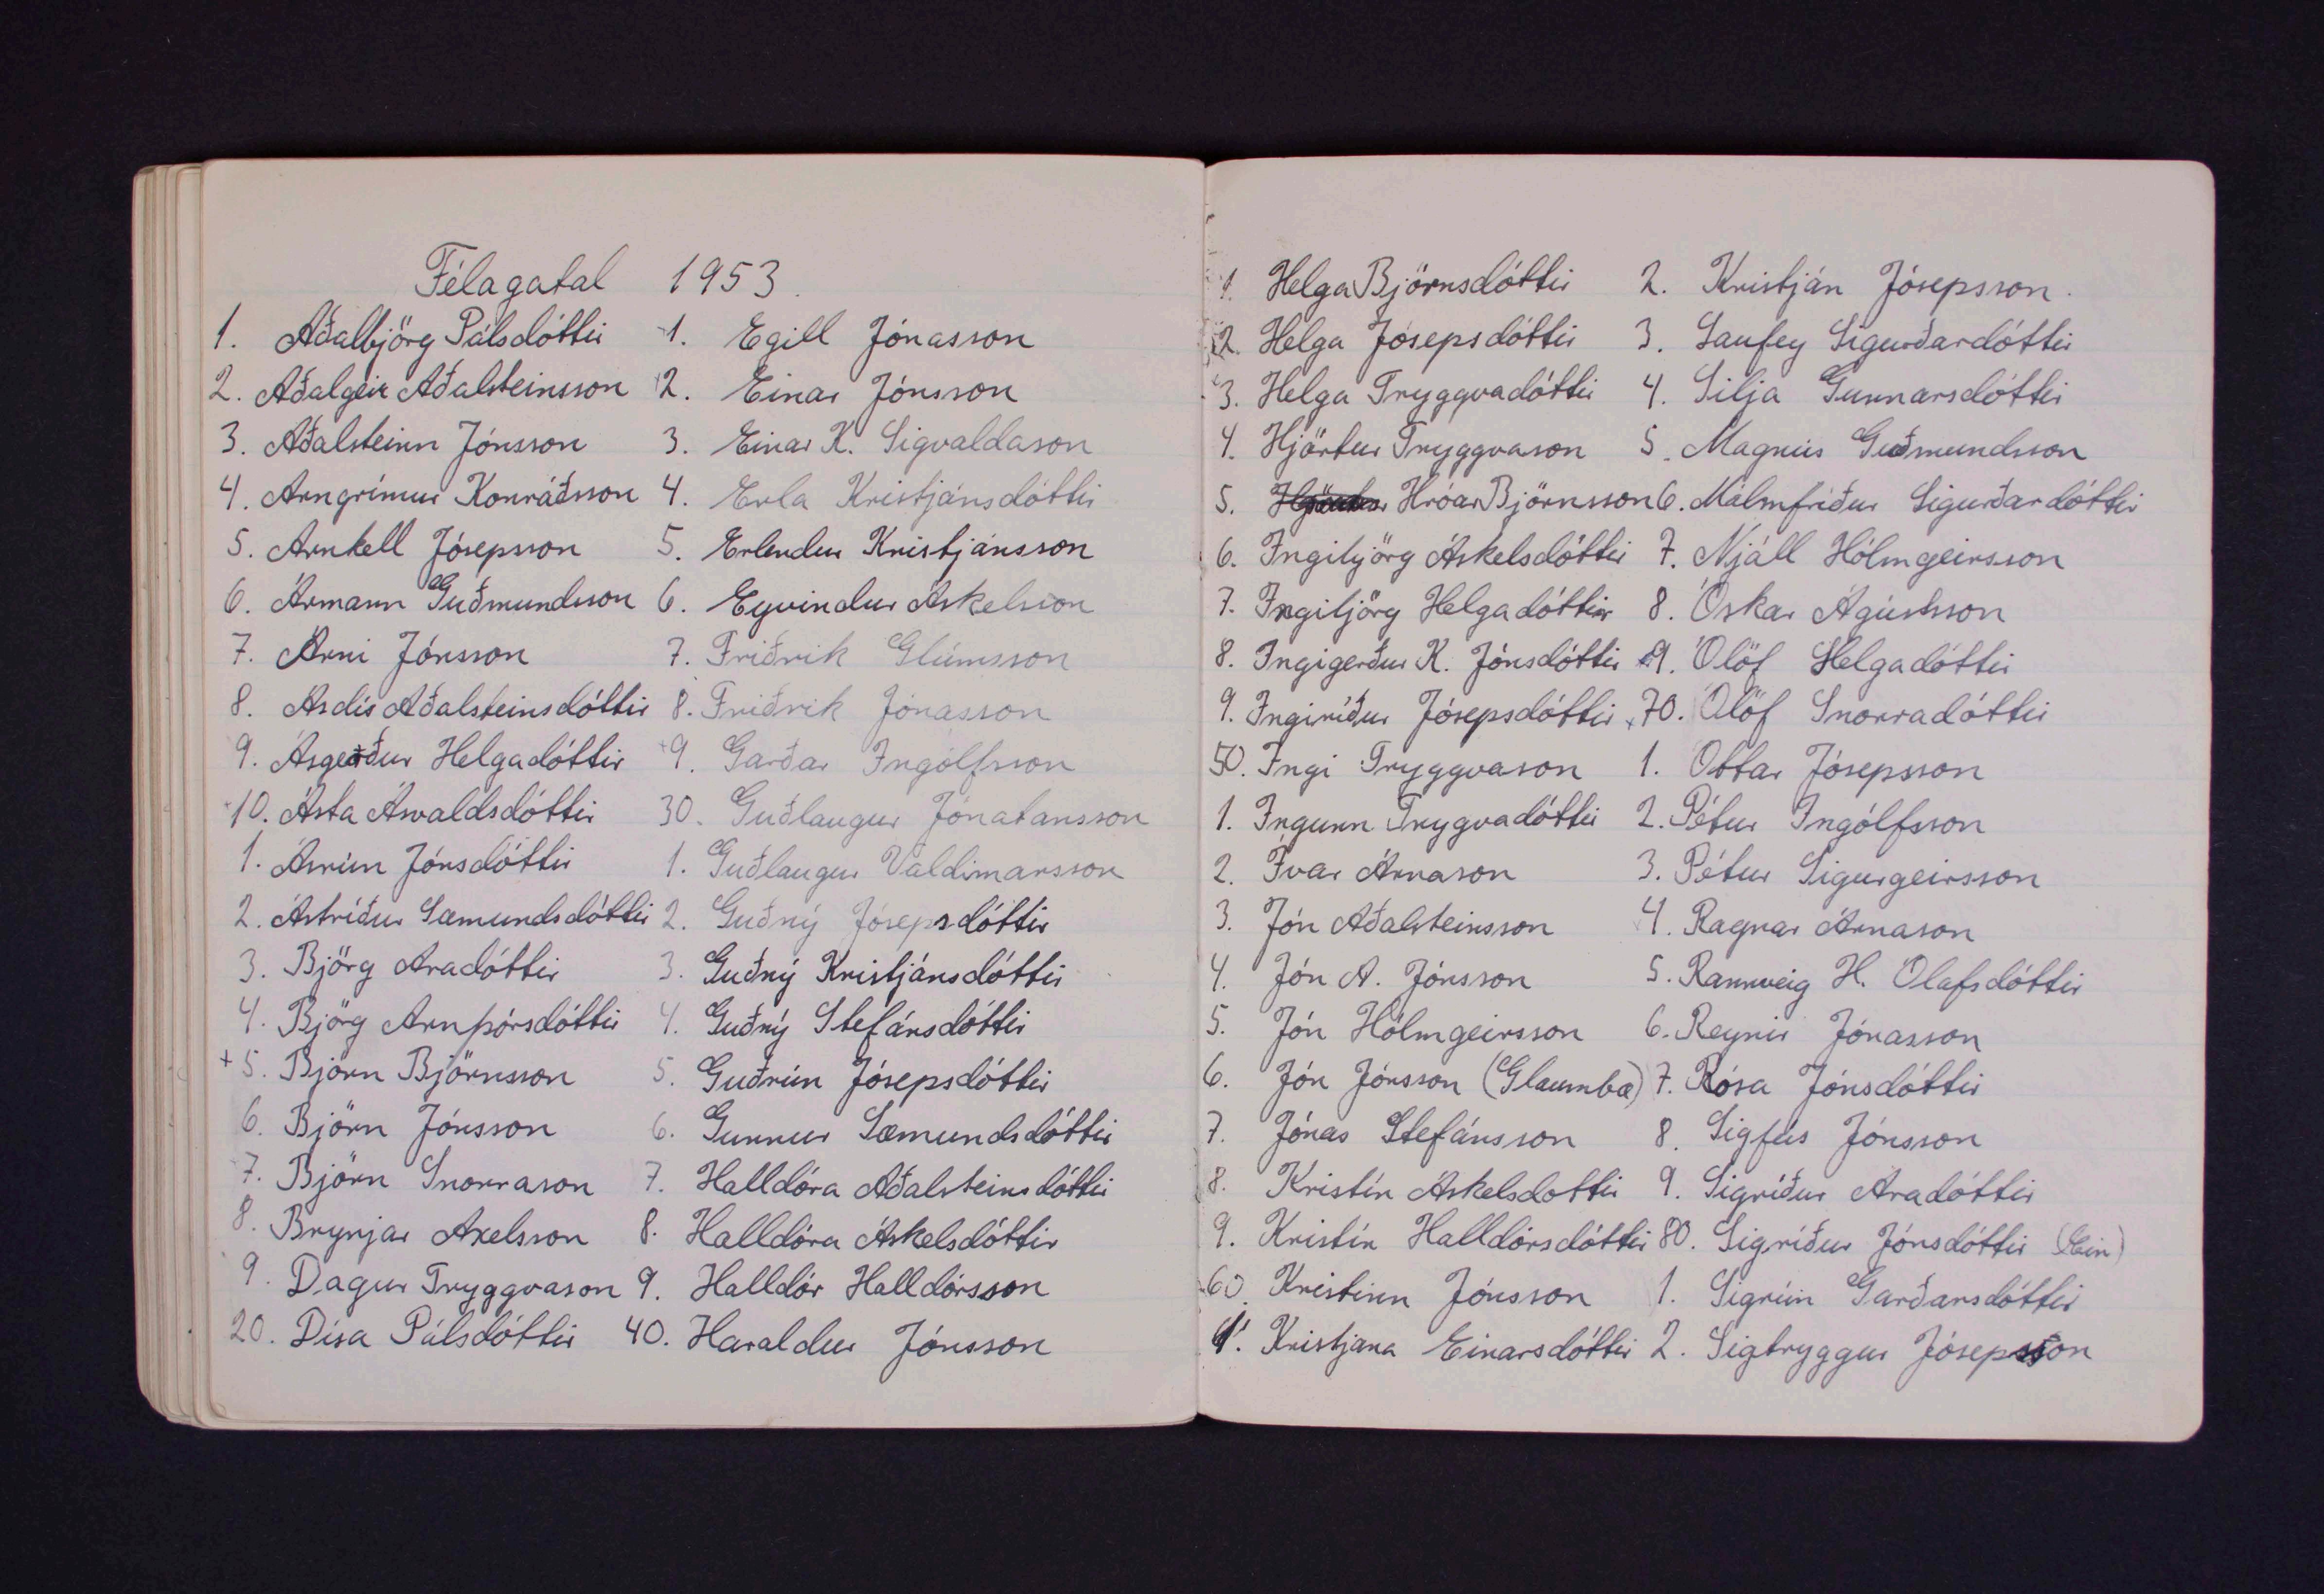 Félagatal 1953.
1. Aðalbjörg Pálsdóttir
2. Aðalgeir Aðalsteinsson
3. Aðalsteinn Jónsson
4. Arngrímur Konráðsson
5. Arnkell Jósepsson
6. Ármann Guðmundsson
7. Árni Jónsson
8. Ásdís Aðalsteinsdóttir
9. Ásgerður Helgadóttir
10. Ásta Ásvaldsdóttir
1. Ásrún Jónsdóttir
2. Ástríður Sæmundsdóttir
3. Björg Aradóttir
4. Björg Arnþórsdóttir
+ 5. Björn Björnsson
6. Björn Jónsson
7. Björn Snorrason
8. Brynjar Axelsson
9. Dagur Tryggvason
20. Dísa Pálsdóttir
1. Egill Jónasson
2. Einar Jónsson
3. Einar K. Sigvaldason
4. Erla Kristjánsdóttir
5. Erlendur Kristjánsson
6. Eyvindur Áskelsson
7. Friðrik Glúmsson
8. Friðrik Jónasson
+9. Garðar Ingólfsson
30. Guðlaugur Jónatansson
1. Guðlaugur Valdimarsson
2. Guðný Jósepsdóttir
3. Guðný Kristjánsdóttir
4. Guðný Stefánsdóttir
5. Guðrún Jósepsdóttir
6. Gunnur Sæmundsdóttir
7. Halldóra Aðalsteinsdóttir
8. Halldóra Áskelsdóttir
9. Halldór Halldórsson
40. Haraldur Jónsson
1. Helga Björnsdóttir
2. Helga Jósepsdóttir
3. Helga Tryggvadóttir
4. Hjörtur Tryggvason
5. Hróar Björnsson
6. Ingibjörg Áskelsdóttir
7. Ingibjörg Helgadóttir
8. Ingigerður K. Jónsdóttir
9. Ingiríður Jósepsdóttir
50. Ingi Tryggvason
1. Ingunn Tryggvadóttir
2. Ívar Árnason
3. Jón Aðalsteinsson
4. Jón A. Jónsson
5. Jón Hólmgeirsson
6. Jón Jónsson (Glaumbæ)
7. Jónas Stefánsson
8. Kristín Áskelsdottir
9. Kristín Halldórsdóttir
60. Kristinn Jónsson
1. Kristjana Einarsdóttir
2. Kristján Jósepsson.
3. Laufey Sigurðardóttir
4. Lilja Gunnarsdóttir
5. Magnús Guðmundsson
6. Málmfríður Sigurðardóttir
7. Njáll Hólmgeirsson
8. Óskar Ágústsson
9. Ólöf Helgadóttir
70. Ólöf Snorradóttir
1. Óttar Jósepsson
2. Pétur Ingólfsson
3. Pétur Sigurgeirsson
4. Ragnar Árnason
5. Rannveig H. Ólafsdóttir
6. Reynir Jónasson
7. Rósa Jónsdóttir
8. Sigfús Jónsson
9. Sigríður Aradóttir
80. Sigríður Jónsdóttir
1. Sigrún Garðarsdóttir
2. Sigtryggur Jósepsson